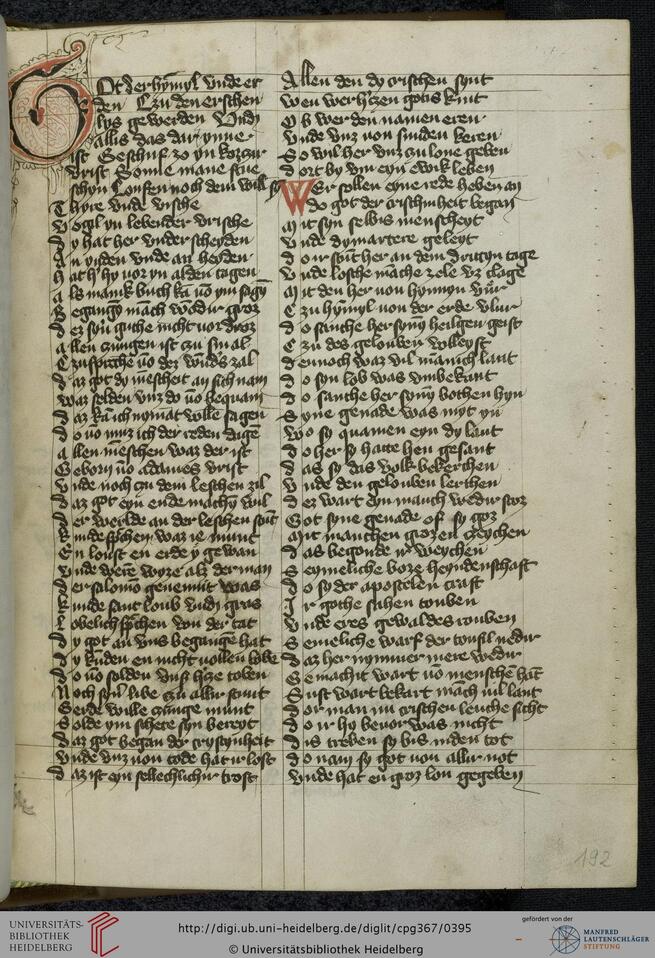 Got der hymyl vnde er
den Czu den erschen
lys gewerden Vnd
allis das dar ynne
ist Geschuf zo yn korczir
vrist Sonne mane
schyn noch dem will sy
Thyre vnde vische
Vogil yn lebender vrische
Dy hat her vnderscheyden
An yuden vnde an heyden
Hat hy vor yn alden tagen
Als manik buch kan von ym sagen
Begangen manch wondir groz
Dez syn gute nicht vordroz
Allen czungen ist czu smal
Czu sprechene von dez wunders zal
Daz got dy mescheit an sich nam
Waz selden vnz do von bequam
Daz kan ich nymant wolle sagen
Do von muz ich der reden dagen
Allen menschen waz der ist
Geborn von adames vrist
Vnde noch czu dem leschen zil
Daz got eyn ende machyn wil
Der werlde an der leschen
sprechen waz ie munt
En louft en erde y gewan
Vnde were wyze alz der man
Der salomon genennit was
Kunde sant loub vnd gras
Lobelich sprechen von der tat
Dy got an vns begangen hat
Dy kunden en nicht vollen lobe
Do von solden vnse herze toben
Noch syner libe czu allir stunt
Herde wille czunge munt
Solde ym schere syn bereyt
Daz got began der crystynheit
Vnde vnz von tode hat irlost
Daz ist eyn sellechlichir trost
Allen den dy cristhen synt
Wen wer herczen gotis kint
Ob wer den namen eren
Vnde vnz von sunden keren
So wil her vnz zu lone geben
Dort by ym eyn ewik leben
Wer sollen eyne rede heben an
Do got der cristinheit began
Mit syn selbis menscheyt
Vnde dy martere geleyt
Do irstunt her an dem drittyn tage
Vnde loste manche zele vz clage
Mit den her von hynnyn vur
Czu hymyl von der erde vlur
Do sanche her syn heilgen geist
Czu des gelouben volleyst
Dennoch waz vil manich lant
Do syn lob was vmbekant
Do sanche her syn bothen hyn
Syne genade was myt yn
Wo sy quamen eyn dy lant
Do her sy hatte hen gesant
Das sy das volk bekerchen
Vnde den gelouben lerchen
Dez wart eyn manch wedir saz
Got syne genade of sy goz
Mit manchen grozen czeychen
Das begonde weychen
Semeliche boze heydenschaft
Do sy der apostelen craft
Ir gothe sahen touben
Vnde eres gewaldes rouben
Semeliche warf der toufil nedir
Daz her nymmer mere wedir
Gemachit wart von menschen hant
Sust wart bekart manch vil lant
Dor man nu cristhen leuthe sicht
Do ir hy bevor was nicht
Dis treben sy bis in den tot
Do nam sy got von allir not
Vnde hat en groz lon gegeben
192
UNIVERSITÄTS-
BIBLIOTHEK
HEIDELBERG
http://digi.ub.uni-heidelberg.de/diglit/cpg367/0395
© Universitätsbibliothek Heidelberg
gefördert von der
MANFRED
LAUTENSCHLÄGER
STIFTUNG